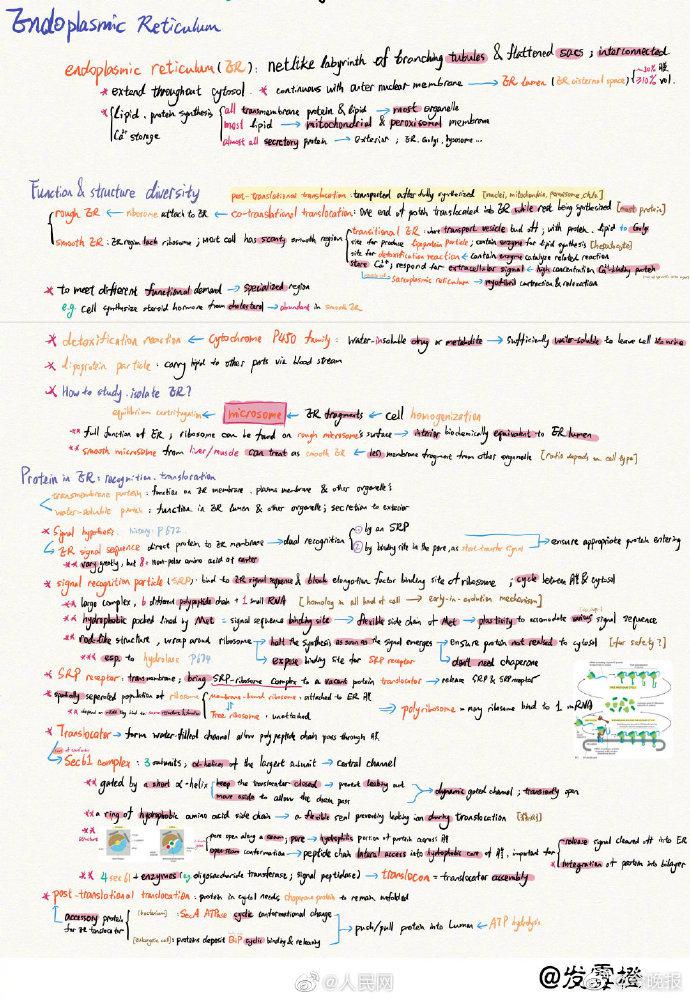 Endoplasmic Reticulum
endoplasmic reticulum (ER): netlike labyrinth of branching tubules & flattened sacs; interconnected
* extend throughout cytosol * continuous with outer nuclear membrane → ER lumen (ER cisternal space)
* Lipid, protein synthesis all transmembrane protein & lipid → most organelle
Ca²⁺ storage most lipid → mitochondrial & peroxisomal membrane
almost all secretory protein → exterior; ER, Golgi, lysosome...
Function & structure diversity post-translational translocation: transported after fully synthesized
rough ER ← ribosome attach to ER ← co-translational translocation: one end of protein translocated into ER while rest being synthesized [most protein]
smooth ER: ER region lack ribosome; most cell has scanty smooth region transitional ER: where transport vesicle bud off; with protein, lipid to Golgi
site for produce lipoprotein particle; contain enzyme for lipid synthesis [hepatocyte]
site for detoxification reaction ← contain enzyme catalyze related reaction
store Ca²⁺; respond for extracellular signal ← high concentration Ca²⁺-binding protein
sarcoplasmic reticulum → myofibril contraction & relaxation
* to meet different functional demand → specialized region
e.g. cell synthesize steroid hormone from cholesterol → abundant in smooth ER
* detoxification reaction ← cytochrome P450 family: water-insoluble drug or metabolite → sufficiently water-soluble to leave cell into urine
* lipoprotein particle: carry lipid to other parts via blood stream
* How to study, isolate ER?
equilibrium centrifugation ← microsome ← ER fragments ← cell homogenization
** full function of ER; ribosome can be found on rough microsome's surface → interior biochemically equivalent to ER lumen
** smooth microsome from liver/muscle can treat as smooth ER ← less membrane fragment from other organelle [ratio depends on cell type]
Protein in ER: recognition, translocation
transmembrane protein: function on ER membrane, plasma membrane & other organelle's
water-soluble protein: function in ER lumen & other organelle; secretion to exterior
* Signal hypothesis. history: P672 ① by an SRP
ER signal sequence direct protein to ER membrane → dual recognition ② by binding site in the pore, as start-transfer signal → ensure appropriate protein entering
** vary greatly, but 8+ non-polar amino acid at center
* signal recognition particle (SRP): bind to ER signal sequence & block elongation factor binding site of ribosome; cycle between ER & cytosol
** large complex, 6 different polypeptide chain + 1 small RNA [homolog in all kind of cell → early-in-evolution mechanism]
** hydrophobic pocket lined by Met = signal sequence binding site → flexible side chain of Met → plasticity to accomodate various signal sequence
** rod-like structure, wrap around ribosome → halt the synthesis as soon as the signal emerges → ensure protein not released to cytosol [for safety?]
*** esp. to hydrolase P674 expose binding site for SRP receptor don't need chaperone
* SRP receptor: transmembrane; bring SRP-ribosome complex to a vacant protein translocator → release SRP & SRP receptor
* spatially seperated population of ribosome membrane-bound ribosome: attached to ER
free ribosome: unattached
polyribosome = many ribosome bind to 1 mRNA
* Translocator → form water-filled channel allow polypeptide chain pass through
Sec61 complex: 3 subunits; α-helices of the largest subunit → central channel
** gated by a short α-helix keep the translocator closed → prevent leaking out
move aside to allow the chain pass → dynamic gated channel; transiently open
** a ring of hydrophobic amino acid side chain → a flexible seal preventing leaking ion during translocation
** structure pore open along a seam; pore → hydrophilic portion of protein across
open seam conformation → peptide chain lateral access into hydrophobic core of, important for release signal cleaved off into ER
integration of protein into bilayer
** 4 sec61 + enzymes (eg oligosaccharide transferase; signal peptidase) → translocon = translocator assembly
* post-translational translocation: protein in cytosol needs chaperone protein to remain unfolded
accessory protein for ER translocator [bacterium]: SecA ATPase cyclic conformational change
[eukaryotic cell]: proteins deposit BiP cyclic binding & releasing → push/pull protein into Lumen ← ATP hydrolysis
@人民网
@发霉橙